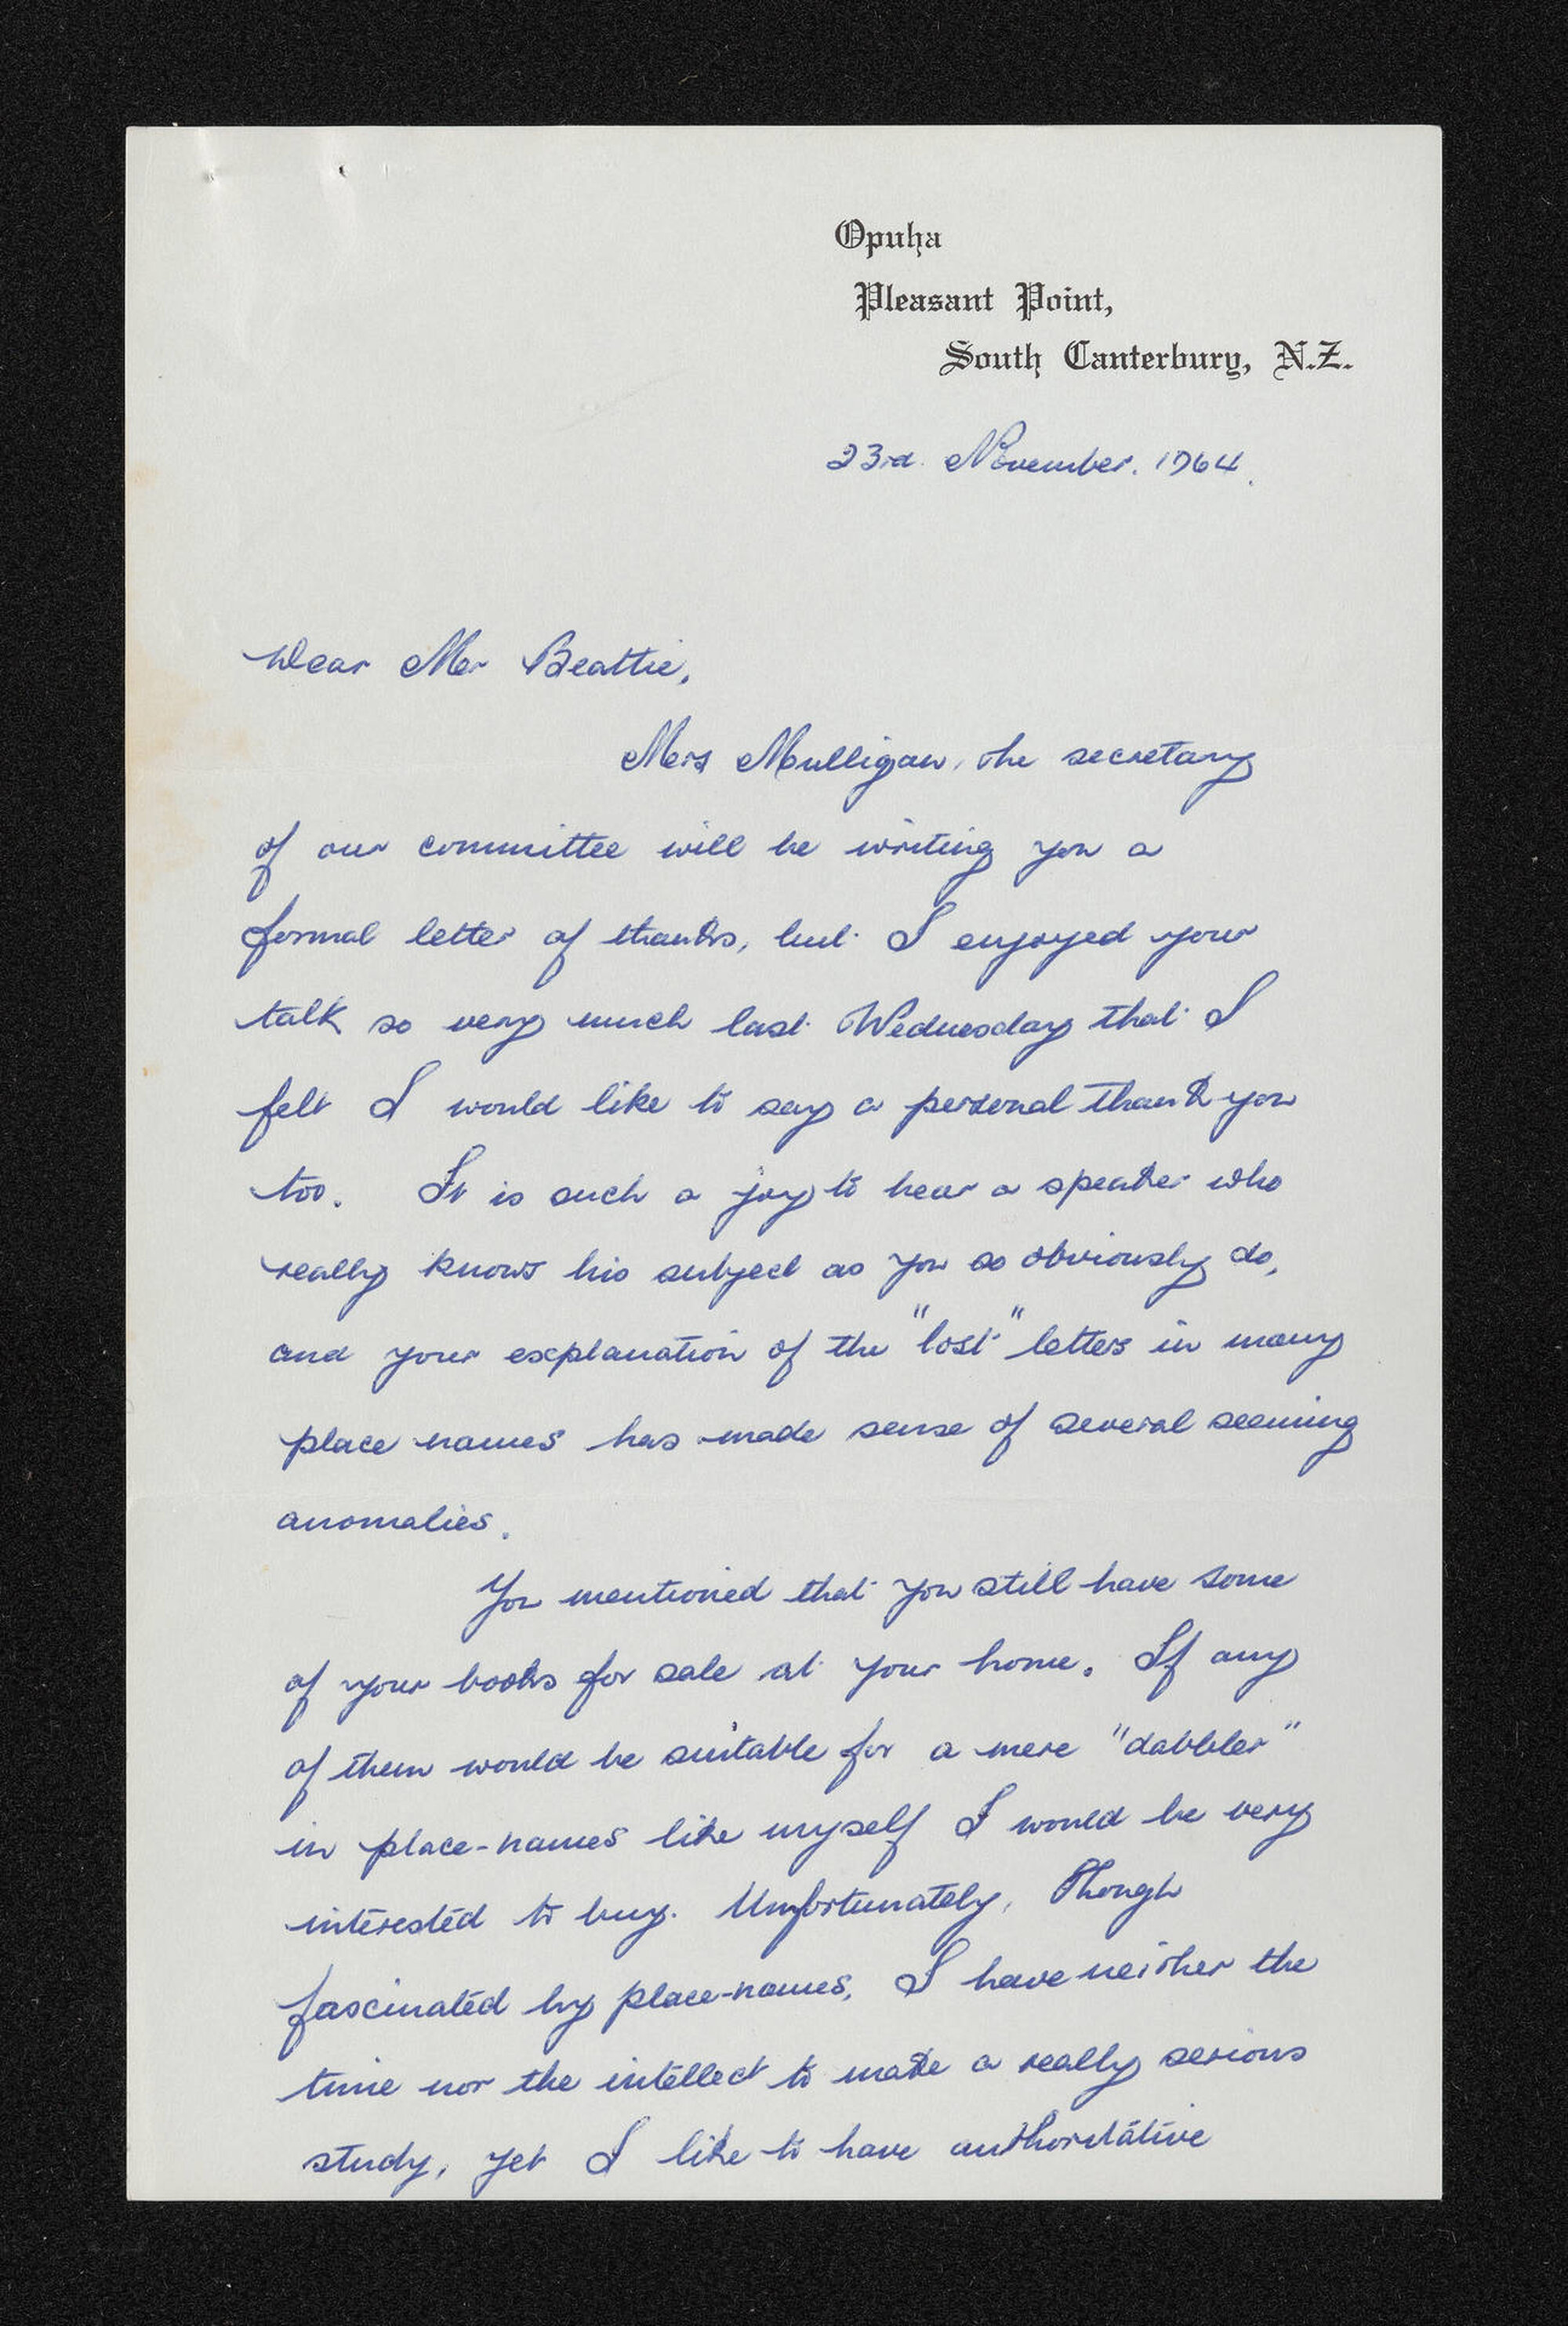 Opuha
Pleasant Point,
South Canterbury, N.Z.
23rd. November. 1964.
Dear Mr Beattie,
Mrs Mulligan, the secretary
of our committee will be writing you a
formal letter of thanks, but I enjoyed your
talk so very much last Wednesday that I
felt I would like to say a personal thank you
too. It is such a joy to hear a speaker who
really knows his subject as you so obviously do,
and your explanation of the "lost" letters in many
place names has made sense of several seeming
anomalies.
You mentioned that you still have some
of your books for sale at your home. If any
of them would be suitable for a mere "dabbler"
in place-names like myself I would be very
interested to buy. Unfortunately, though
fascinated by place-names, I have neither the
time nor the intellect to make a really serious
study, yet I like to have authoritative